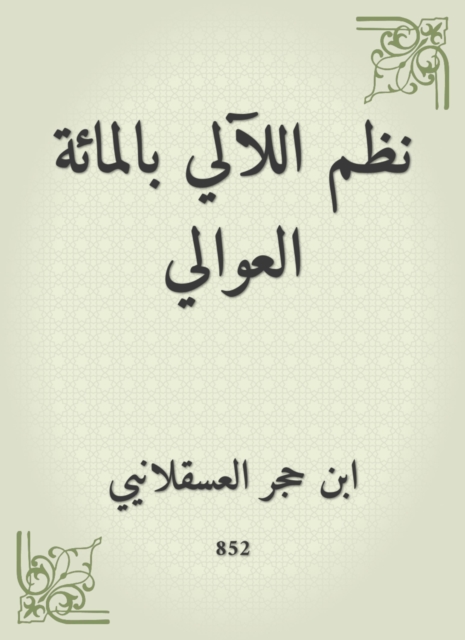 نظم اللآلي بالمائة
العوالي
ابن حجر العسقلانيي
852